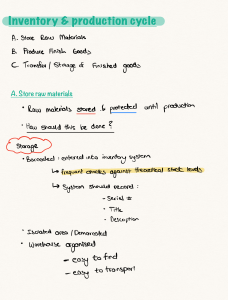 Inventory & production cycle
A. Store Raw Materials
B. Produce Finish Goods
C. Transfer/Storage of Finished goods
A. Store raw materials
• Raw materials stored & protected until production
• How should this be done?
Storage
• Barcoded: entered into inventory system
↳ frequent checks against theoretical stock levels
↳ System should record:
- Serial #
- Title
- Description
• Isolated area / Demarcated
• Warehouse organised
- easy to find
- easy to transport